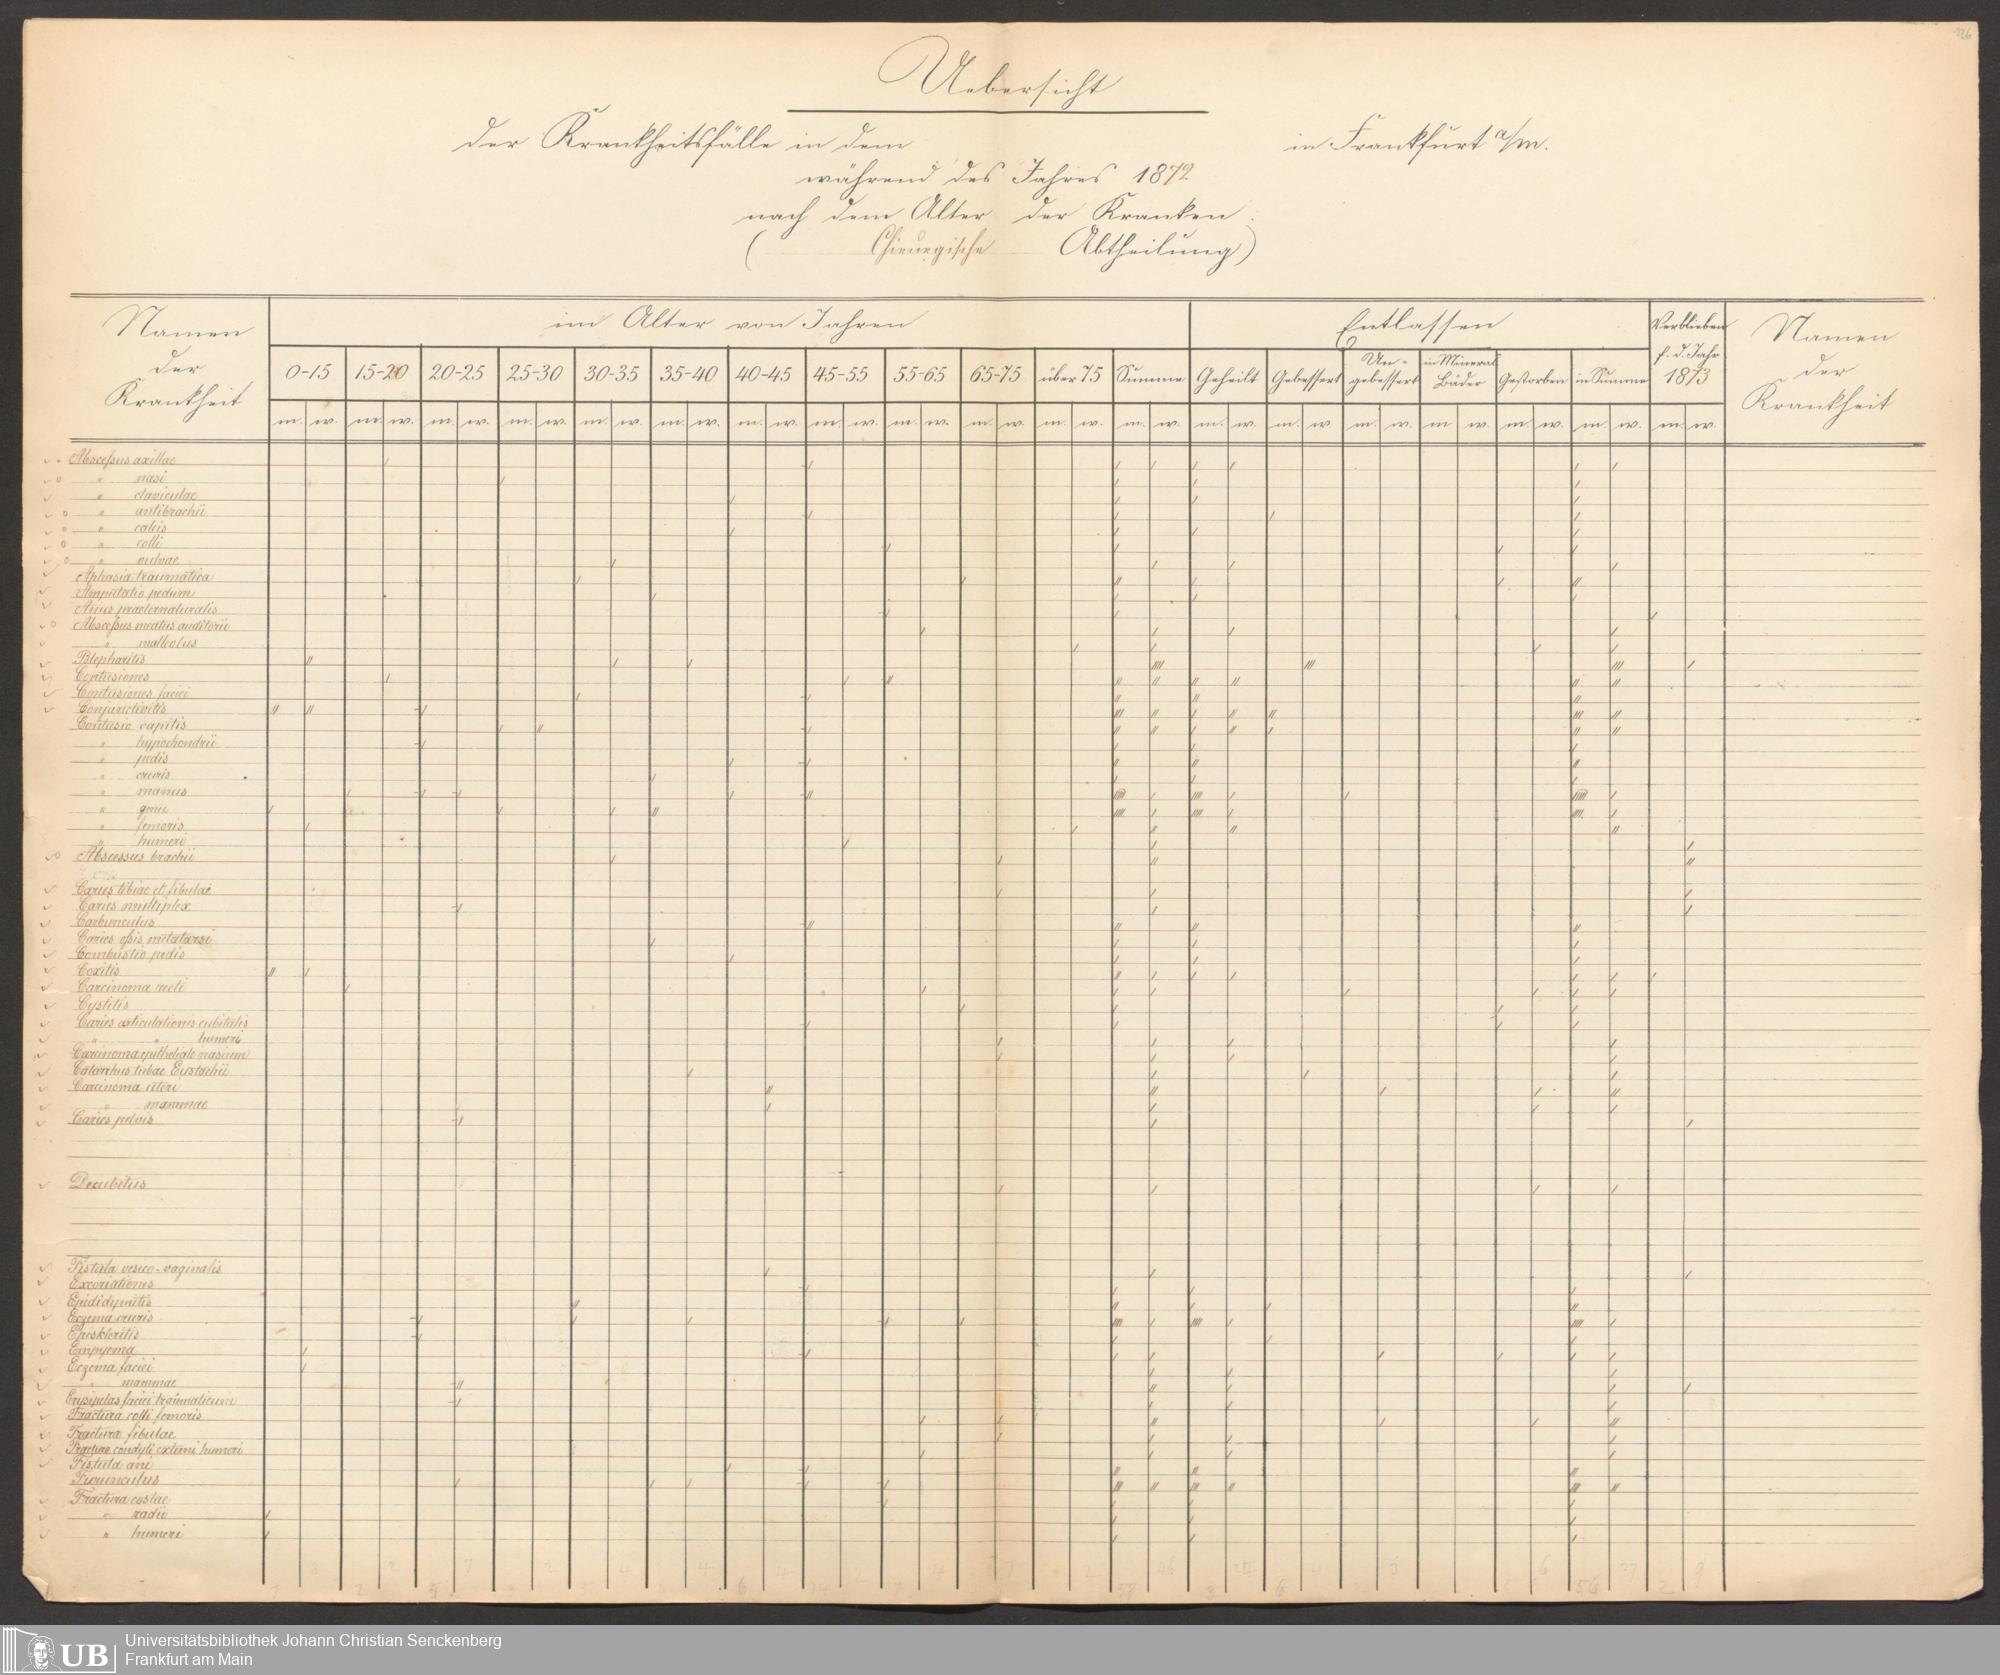 126
Uebersicht
der Krankheitsfälle in dem in Frankfurt a/m.
während des Jahres 1872
nach dem Alter der Kranken.
( Chirurgische Abtheilung)
Namen der Krankheit
im Alter von Jahren
Entlassen
Verblieben f. d. Jahr 1873
Namen der Krankheit
0-15 15-20 20-25 25-30 30-35 35-40 40-45 45-55 55-65 65-75 über 75 Summe Geheilt Gebessert Un-gebessert in Mineral Bäder Gestorben in Summe
m. w. m. w. m. w. m. w. m. w. m. w. m. w. m. w. m. w. m. w. m. w. m. w. m. w. m. w. m. w. m w. m. w. m. w. m. w.
Abscessus axillae
" nasi
" claviculae
" antibrachii
" calcis
" colli
" vulvae
Aphasia traumatica
Amputatio pedum
Anus praeternaturalis
Abscessus meatus auditorii
" malleolus
Blepharitis
Contusiones
Contusiones faciei
Conjunctivitis
Contusio capitis
" hypochondrii
" pedis
" cruris
" manus
" genu
" femoris
" humeri
Abscessus brachii
Caries tibiae et fibulae
Caries multiplex
Carbunculus
Caries ossis metatarsi
Combustio pedis
Coxitis
Carcinoma recti
Cystitis
Caries articulationis cubitalis
" " humeri
Carcinoma epitheliale nasium
Catarrhus tubae Eustachii
Carcinoma uteri
" mammae
Caries pelvis
Decubitus
Fistula vesico-vaginalis
Excoriationes
Epididymitis
Eczema cruris
Episkleritis
Empyema
Eczema faciei
" mammae
Erysipelas faciei traumaticum
Fractura colli femoris
Fractura fibulae
Fractura condyli externi humeri
Fistula ani
Furunculus
Fractura costae
" radii
" humeri
UB
Universitätsbibliothek Johann Christian Senckenberg
Frankfurt am Main